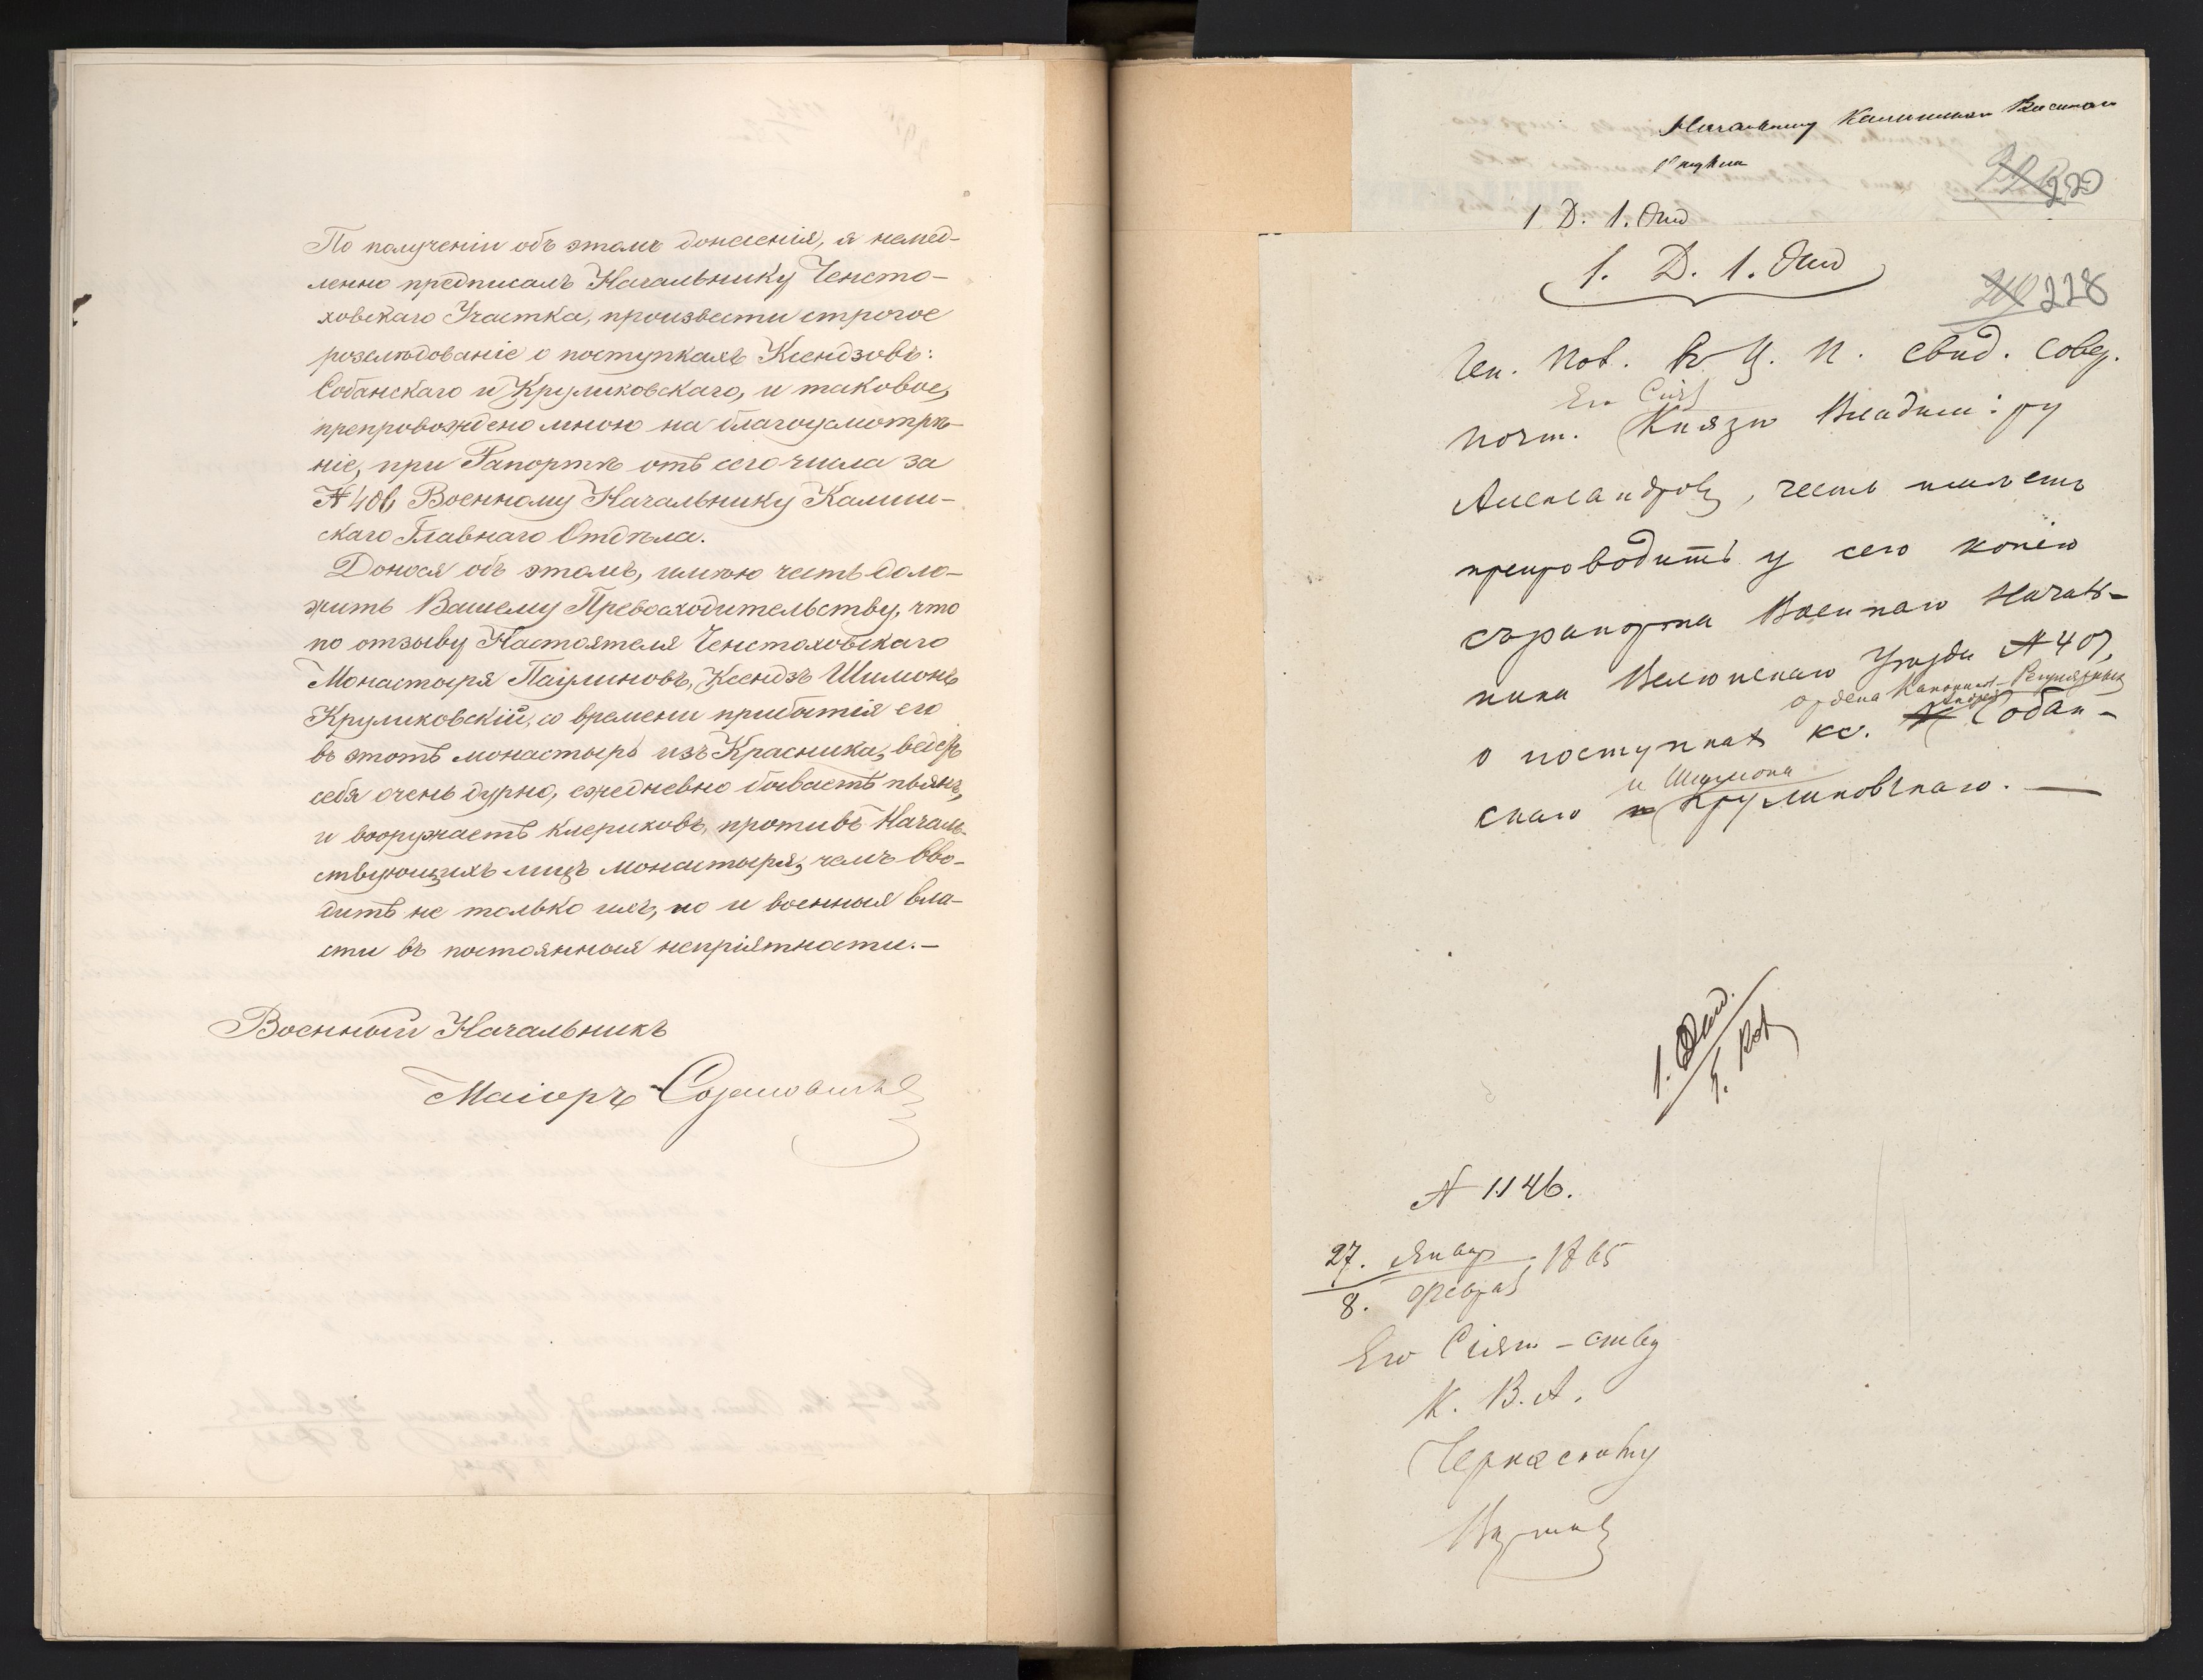 По полученіи объ этомъ донесенія, я немед-
ленно предписалъ Начальнику Ченсто-
ховскаго Участка, произвести строгое
розслѣдованіе о поступкахъ Ксендзовъ:
Собанскаго и Круликовскаго, и таковое,
препровождено мною на благоусмотрѣ-
ніе, при Рапортѣ отъ сего числа за
№ 406, Военному Начальнику Калиш-
скаго Главнаго Отдѣла.
Донося объ этомъ, имѣю честь доло-
жить Вашему Превосходительству, что
по отзыву Настоятеля Ченстоховскаго
Монастыря Паулиновъ, Ксендзъ Шимонъ
Круликовскій, со времени прибытія его
въ этотъ монастырь изъ Красника, ведетъ
себя очень дурно, ежедневно бываетъ пьянъ,
и вооружаетъ клериковъ, противъ Началь-
ствующихъ лицъ монастыря, чемъ вво-
дитъ не только ихъ, но и военныя вла-
сти въ постоянныя непріятности.—
Военный Начальникъ
Маіоръ
Начальнику Военнаго
220
1 Д. 1. Отд
1. Д. 1. Отд
228
Ген. Пол. въ Ц. П. свид. совер.
Его Сіят
почт. Князю Владим: ру
Александров, честь имѣетъ
препроводить у сего копію
съ рапорта Военнаго Началь-
ника Велюнскаго Уѣзда № 407,
ордена Каноник. Регулярныхъ
о поступках кс. Собан-
и Шимона
скаго Круликовскаго. —
1. Отд.
№ 1146.
27. Январ 1865
8. Феврал
Его Сіят-ству
К. В. А.
Черкасскому